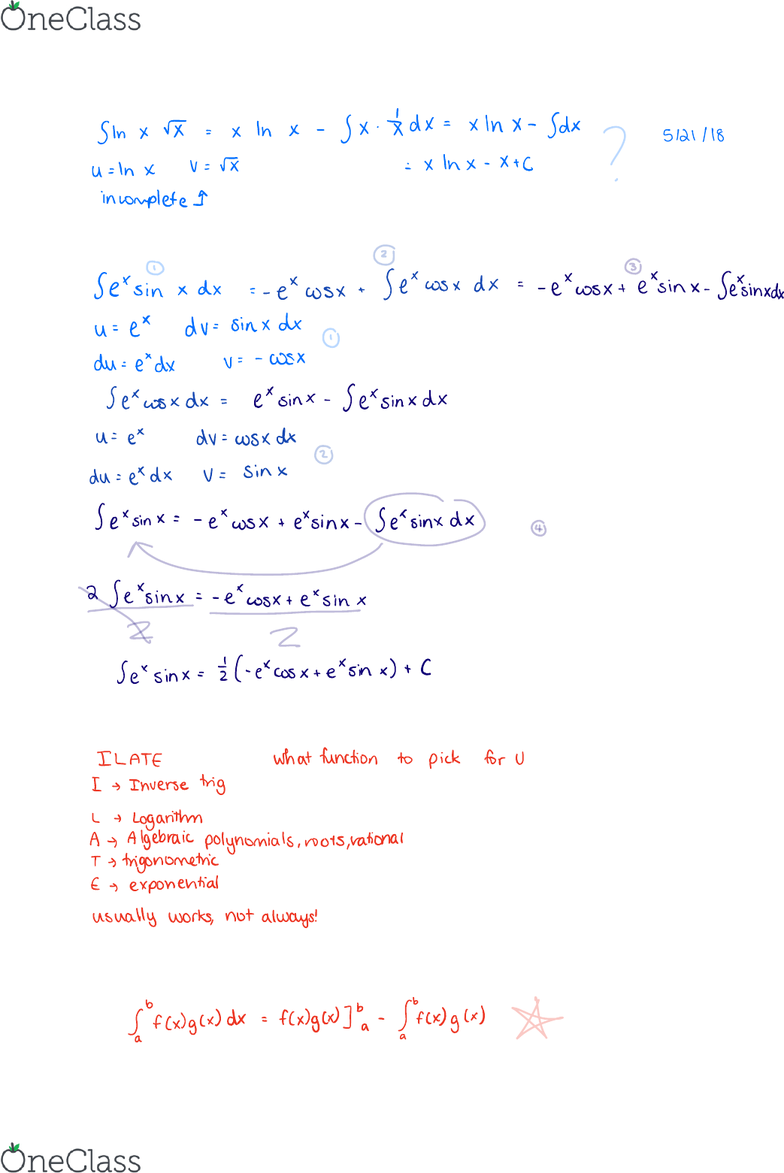 OneClass
∫ln x √x = x ln x - ∫x · 1/x dx = x ln x - ∫dx ? 5/21/18
u = ln x v = √x = x ln x - x + C
incomplete ↑
① ② ③
∫eˣ sin x dx = -eˣ cosx + ∫eˣ cosx dx = -eˣ cosx + eˣ sin x - ∫eˣ sinx dx
u = eˣ dv = sin x dx ①
du = eˣ dx v = - cosx
∫eˣ cosx dx = eˣ sin x - ∫eˣ sin x dx
u = eˣ dv = cosx dx
du = eˣ dx v = sin x ②
∫eˣ sin x = -eˣ cosx + eˣ sinx - ∫eˣ sinx dx ④
2 ∫eˣ sin x = -eˣ cosx + eˣ sin x
2 2
∫eˣ sin x = 1/2 (-eˣ cos x + eˣ sin x) + C
ILATE what function to pick for U
I → Inverse trig
L → Logarithm
A → Algebraic polynomials, roots, rational
T → trigonometric
E → exponential
usually works, not always!
∫ₐᵇ f(x)g(x) dx = f(x)g(x)]ᵇₐ - ∫ₐᵇ f(x)g(x)
OneClass